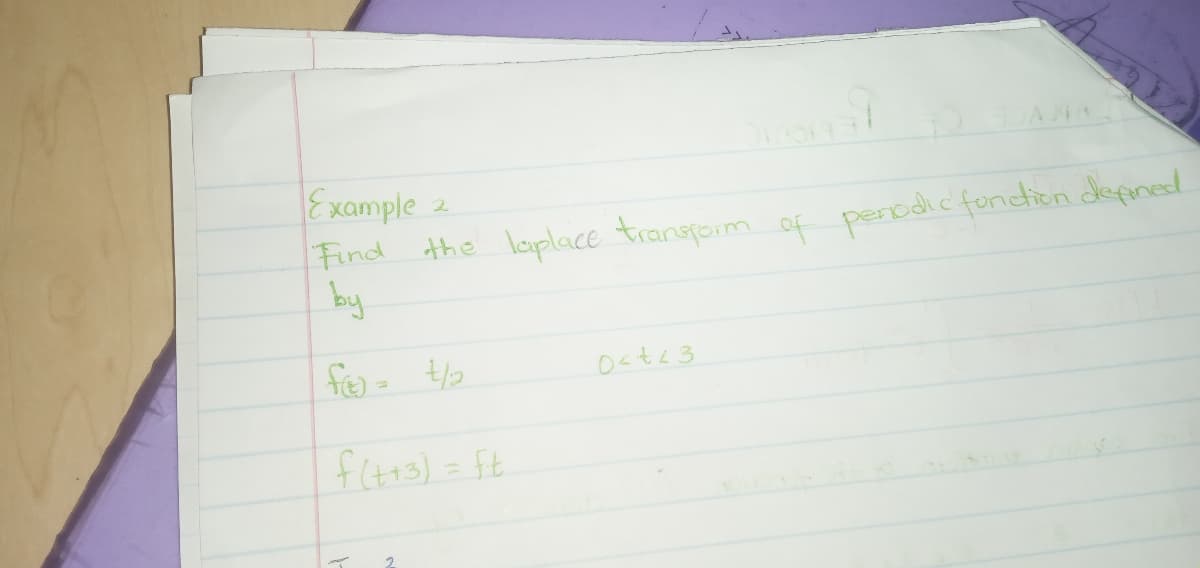 Example 2
Find the laplace transform of periodic function defined
by
f(t) = t/2 0<t<3
f(t+3) = ft